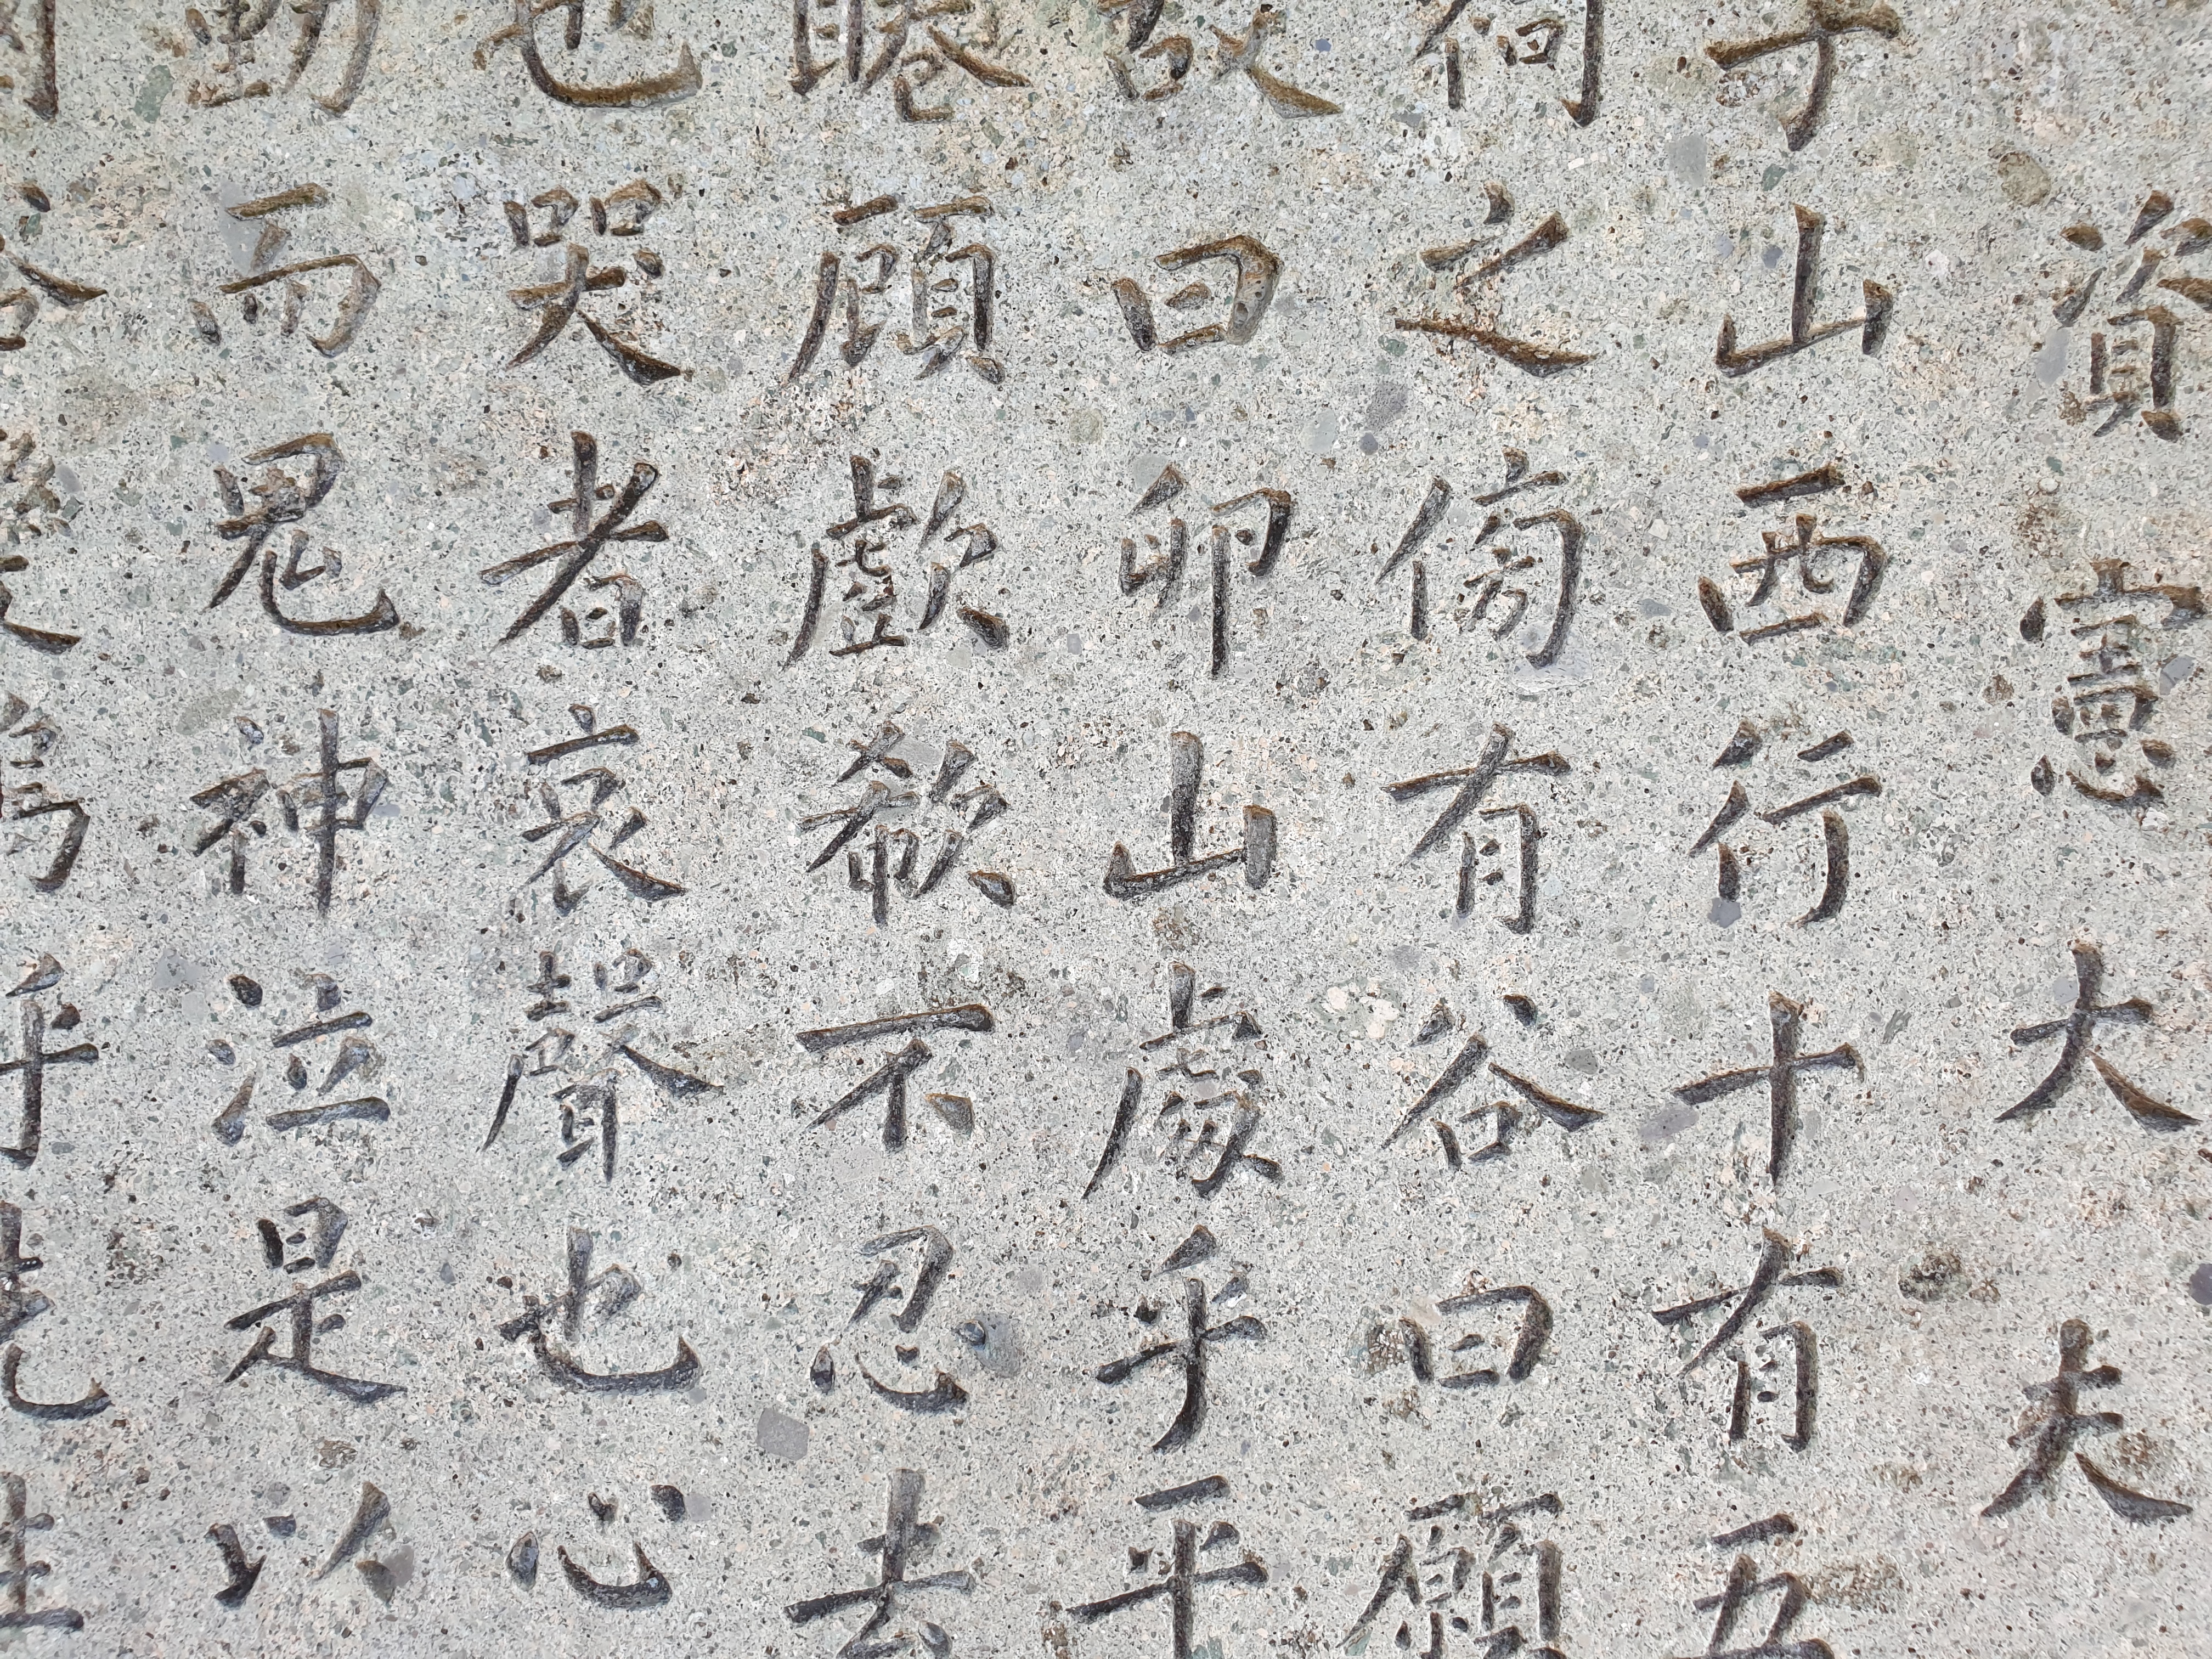 資憲大夫
于山西行十有五
之傍有谷曰
曰卯山處乎平
顧歔欷不忍去
也哭者哀聲也心
動而鬼神泣是以